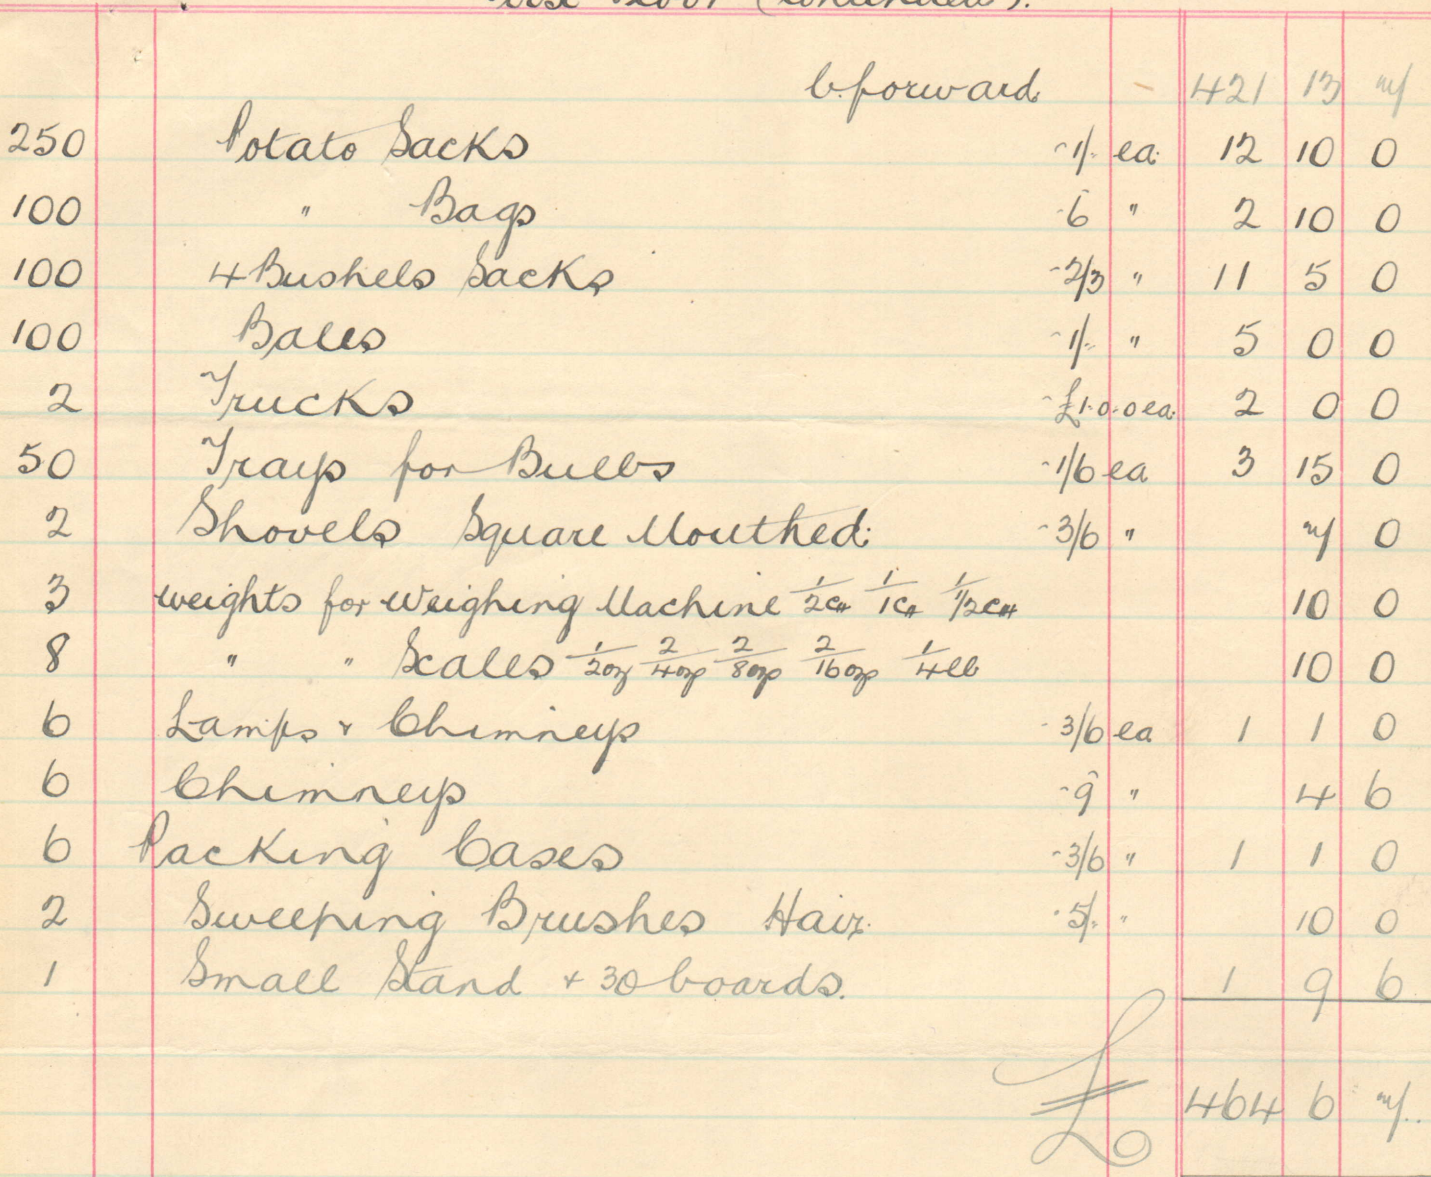 (continued).
b. forward. - 421 13 7
250 Potato Sacks -1/- ea. 12 10 0
100 " Bags -6 " 2 10 0
100 4 Bushels Sacks -2/3 " 11 5 0
100 Bales -1/- " 5 0 0
2 Trucks -£1.0.0 ea. 2 0 0
50 Trays for Bulbs -1/6 ea 3 15 0
2 Shovels Square Mouthed. -3/6 " 7 0
3 weights for Weighing Machine 1/2 1/1 1/1/2 10 0
8 " " Scales 1/2oz 2/4oz 2/8oz 2/16oz 1/4lb 10 0
6 Lamps & Chimneys -3/6 ea 1 1 0
6 Chimneys -9 " 4 6
6 Packing Cases -3/6 " 1 1 0
2 Sweeping Brushes Hair. -5/- " 10 0
1 Small Stand & 30 boards. 1 9 6
£ 464 6 7